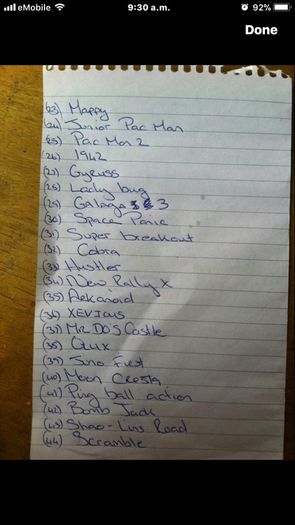 eMobile
9:30 a.m.
92%
Done
(23) Mappy
(24) Junior Pac Man
(25) Pac Man 2
(26) 1942
(27) Gyruss
(28) Lady bug
(29) Galaga 3
(30) Space Panic
(31) Super breakout
(32) Cobra
(33) Hustler
(34) New Rally X
(35) Arkanoid
(36) XEVIOUS
(37) MR DO'S Castle
(38) Qux
(39) Juno First
(40) Moon Cresta
(41) Ping ball action
(42) Bomb Jack
(43) Shao-Lins Road
(44) Scramble